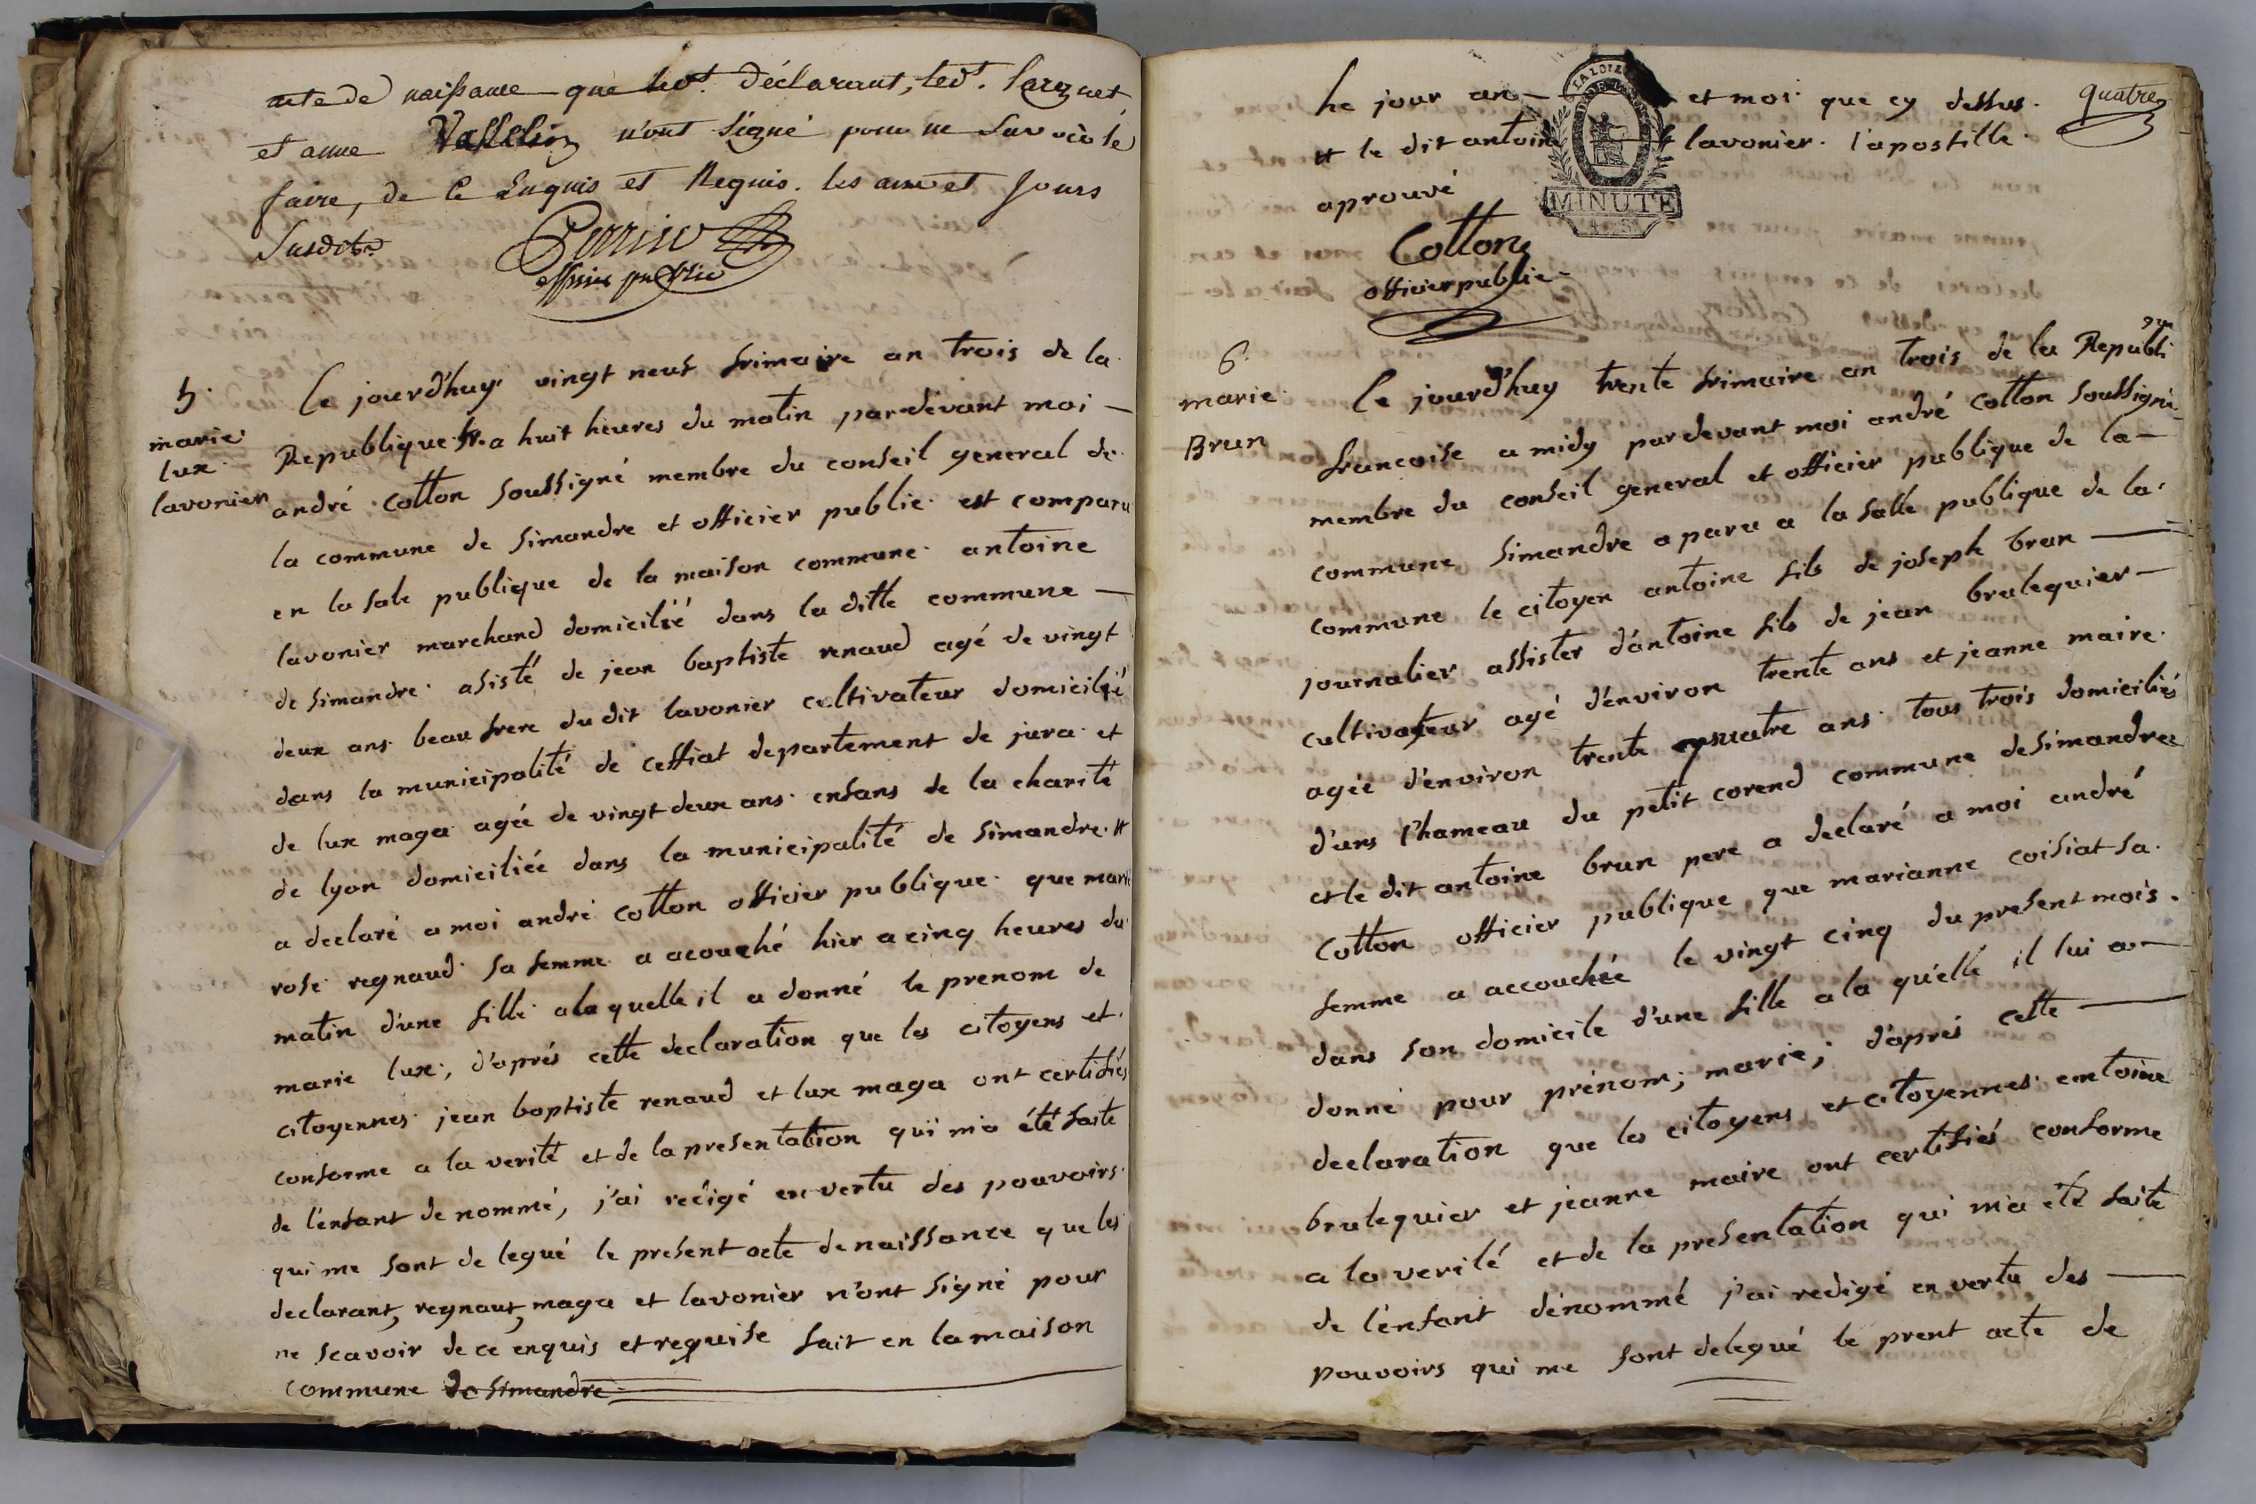 acte de naissance que led.t déclarant, led.t
et anne Vasselin n'ont signé pour ne savoir le
faire, de ce Enquis et Requis. les an et jours
susdits
Perrin
officier public
5.
marie
lux
lavonier
Ce jourd'huy vingt neuf frimaire an trois de la
Republique fr. a huit heures du matin par devant moi
andré cotton soussigné membre du conseil general de
la commune de simandre et officier public est comparu
en la sale publique de la maison commune antoine
lavonier marchand domicilié dans la ditte commune
de simandre asisté de jean baptiste renaud agé de vingt
deux ans beau frere du dit lavonier cultivateur domicilié
dans la municipalité de ceffiat departement de jura et
de lux maga agée de vingt deux ans enfans de la charité
de lyon domiciliée dans la municipalité de simandre #
a declaré a moi andré cotton officier publique que marie
rose regnaud sa femme a acouché hier a cinq heures du
matin d'une fille a laquelle il a donné le prenom de
marie lux, d'aprés cette declaration que les citoyens et
citoyennes jean baptiste renaud et lux maga ont certifiés
conforme a la verité et de la presentation qui m'a été faite
de l'enfant denommé, j'ai redigé en vertu des pouvoirs
qui me sont delegué le present acte de naissance que les
declarant, regnaut, maga et lavonier n'ont signé pour
ne scavoir de ce enquis et requise fait en la maison
commune de simandre
quatre
le jour an et moi que cy dessus
# le dit antoine lavonier l'apostille
aprouvé
LA LOI
MINUTE
Cotton
officier public
6
marie
Brun
Ce jourd'huy trente frimaire an trois de la Republi
que
francoise a midy par devant moi andré cotton soussigné
membre du conseil general et officier publique de la
commune simandre a paru a la salle publique de la
commune le citoyen antoine fils de joseph brun
journalier assister d'antoine fils de jean brulequier
cultivateur agé d'environ trente ans et jeanne maire
agée d'environ trente quatre ans tous trois domiciliés
d'ans l'hameau du petit corend commune de simandre
et le dit antoine brun pere a declaré a moi andré
Cotton officier publique que marianne coisiat sa
femme a accouchée le vingt cinq du present mois
dans son domicile d'une fille a la qu'elle il lui a
donné pour prénom; marie; d'aprés cette
declaration que les citoyens et citoyennes antoine
brulequier et jeanne maire ont certifiés conforme
a la verité et de la presentation qui m'a été faite
de l'enfant dénommé j'ai redigé en vertu des
pouvoirs qui me sont delegué le prent acte de